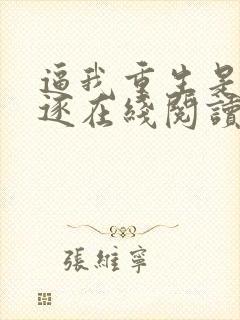 逼我重生是
逐在綫閱讀
張維寧